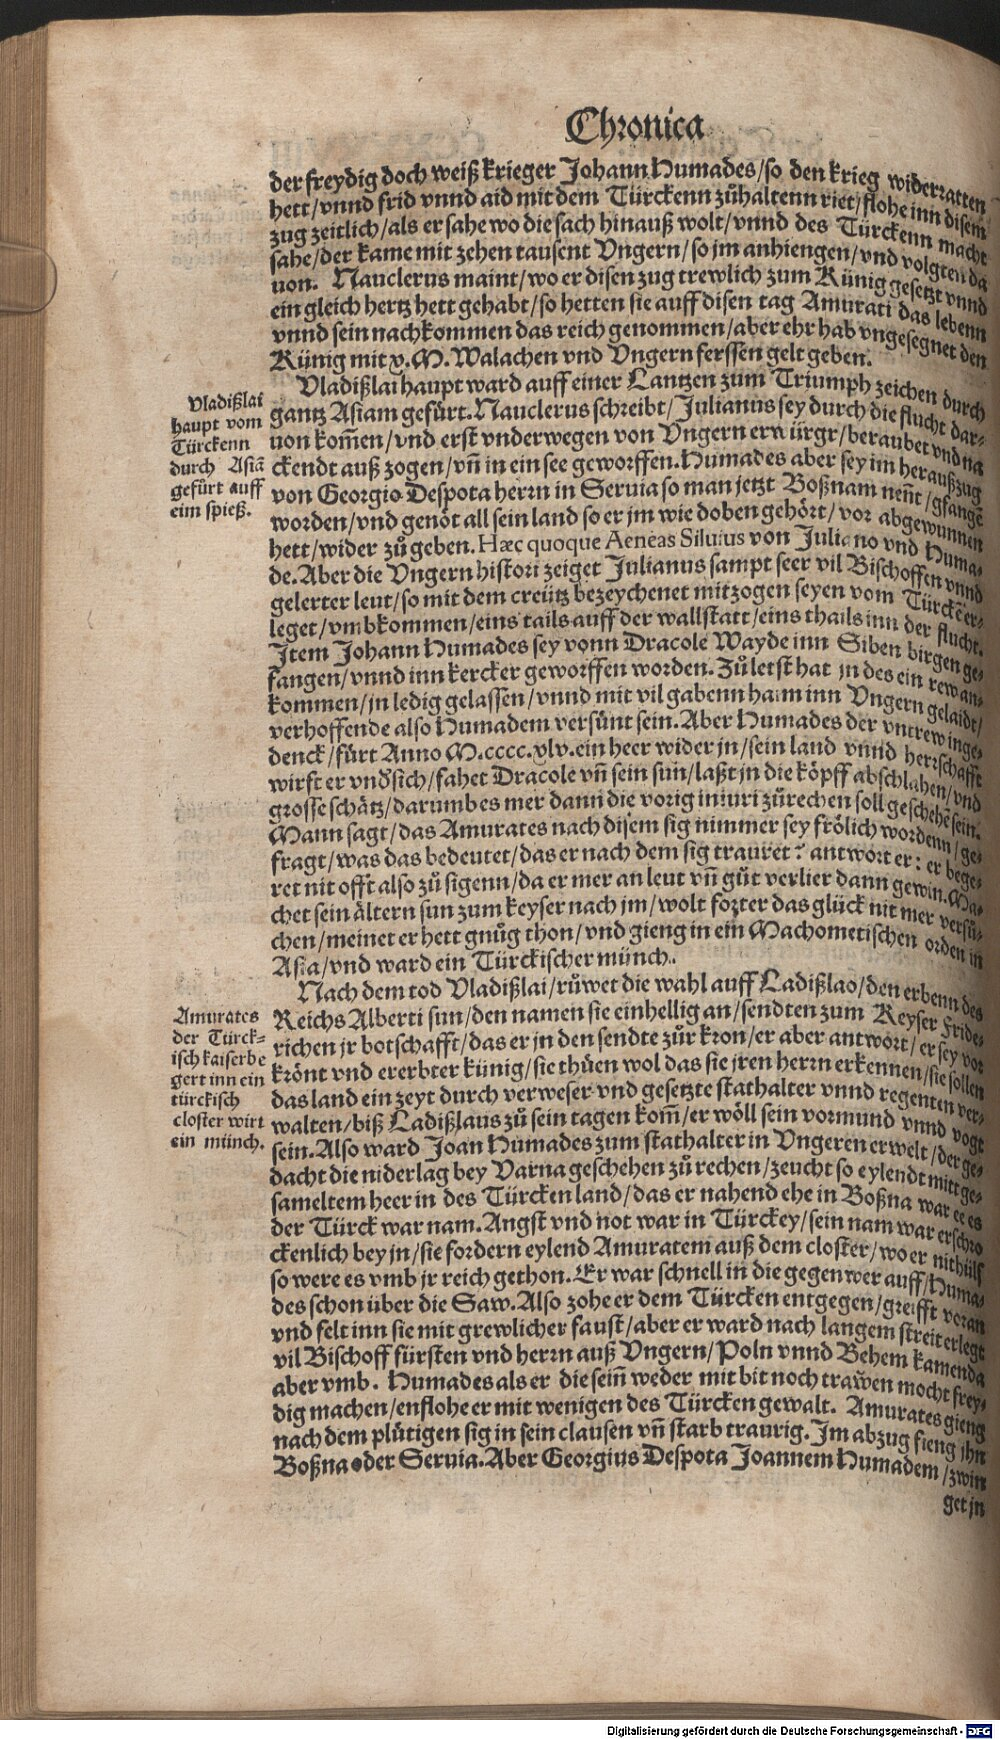 Chronica
der freydig doch weiß krieger Johann Humades/so den krieg widerratten
hett/vnnd frid vnnd aid mit dem Türckenn zůhaltenn riet/flohe inn disem
zug zeitlich/als er sahe wo die sach hinauß wolt/vnnd des Türckenn macht
sahe/der kame mit zehen tausent Vngern/so jm anhiengen/vnd volgten da
uon. Nauclerus maint/wo er disen zug trewlich zum Künig gesetzt vnnd
ein gleich hertz hett gehabt/so hetten sie auff disen tag Amurati das lebenn
vnnd sein nachkommen das reich genommen/aber ehr hab vngesegnet den
Künig mit x.M. Walachen vnd Vngern ferssen gelt geben.
Vladißlai haupt ward auff einer Lantzen zum Triumph zeichen durch
gantz Asiam gefürt. Nauclerus schreibt/Julianus sey durch die flucht dar-
uon kom̄en/vnd erst vnderwegen von Vngern erwürgr/beraubet vnd na
ckendt auß zogen/vn̄ in ein see geworffen. Humades aber sey im heraußzug
von Georgio Despota herrn in Seruia so man jetzt Boßnam nen̄t/gfangē
worden/vnd genöt all sein land so er jm wie doben gehört/vor abgewunnen
hett/wider zů geben. Hæc quoque Aeneas Siluius von Juliano vnd Huma-
de. Aber die Vngern histori zeiget Julianus sampt seer vil Bischoffen vnnd
gelerter leut/so mit dem creütz bezeychenet mitzogen seyen vom Türckē er-
leget/vmbkommen/eins tails auff der wallstatt/eins thails inn der flucht.
Item Johann Humades sey vonn Dracole Wayde inn Siben birgen ge-
fangen/vnnd inn kercker geworffen worden. Zů letst hat jn des ein rewan-
kommen/jn ledig gelassen/vnnd mit vil gabenn haim inn Vngern gelaidt/
verhoffende also Humadem versünt sein. Aber Humades der vntrew inge-
denck/fürt Anno M.cccc.xlv. ein heer wider jn/sein land vnnd herrschafft
wirfft er vnd̄sich/fahet Dracole vn̄ sein sun/laßt jn die köpff abschlahen/vnd
grosse schätz/darumb es mer dann die vorig iniuri zůrechen soll geschehē sein.
Mann sagt/das Amurates nach disem sig nimmer sey frölich wordenn/ge-
fragt/was das bedeutet/das er nach dem sig trauret? antwort er: er bege-
ret nit offt also zů sigenn/da er mer an leut vn̄ gůt verlier dann gewin. Ma-
chet sein ältern sun zum keyser nach jm/wolt forter das glück nit mer versů-
chen/meinet er hett gnůg thon/vnd gieng in ein Machometischen orden in
Asia/vnd ward ein Türckischer münch.
Nach dem tod Vladißlai/růwet die wahl auff Ladißlao/den erbenn des
Reichs Alberti sun/den namen sie einhellig an/sendten zum Keyser Fride-
richen jr botschafft/das er jn den sendte zůr kron/er aber antwort/er sey vor
krönt vnd ererbter künig/sie thüen wol das sie jren herrn erkennen/sie sollen
das land ein zeyt durch verweser vnd gesetzte stathalter vnnd regenten ver-
walten/biß Ladißlaus zů sein tagen kom̄/er wöll sein vormund vnnd vogt
sein. Also ward Joan Humades zum stathalter in Vngeren erwelt/der ge-
dacht die niderlag bey Varna geschehen zů rechen/zeucht so eylendt mitt ge-
sameltem heer in des Türcken land/das er nahend ehe in Boßna war ee es
der Türck war nam. Angst vnd not war in Türckey/sein nam war erschro
ckenlich bey jn/sie fordern eylend Amuratem auß dem closter/wo er nit hülf
so were es vmb jr reich gethon. Er war schnell in die gegenwer auff/Huma-
des schon über die Saw. Also zohe er dem Türcken entgegen/greifft voran
vnd felt inn sie mit grewlicher faust/aber er ward nach langem streit erlegt
vil Bischoff fürsten vnd herrn auß Vngern/Poln vnnd Behem kamen da
aber vmb. Humades als er die sein̄ weder mit bit noch trawen mocht frey-
dig machen/enflohe er mit wenigen des Türcken gewalt. Amurates gieng
nach dem plůtigen sig in sein clausen vn̄ starb traurig. Im abzug fieng jhn
Boßna oder Seruia. Aber Georgius Despota Joannem Humadem/zwin
get jn
Vladißlai
haupt vom
Türckenn
durch Asiā
gefürt auff
eim spieß.
Amurates
der Türck-
isch kaiser be
gert inn ein
türckisch
closter wirt
ein münch.
Digitalisierung gefördert durch die Deutsche Forschungsgemeinschaft - DFG